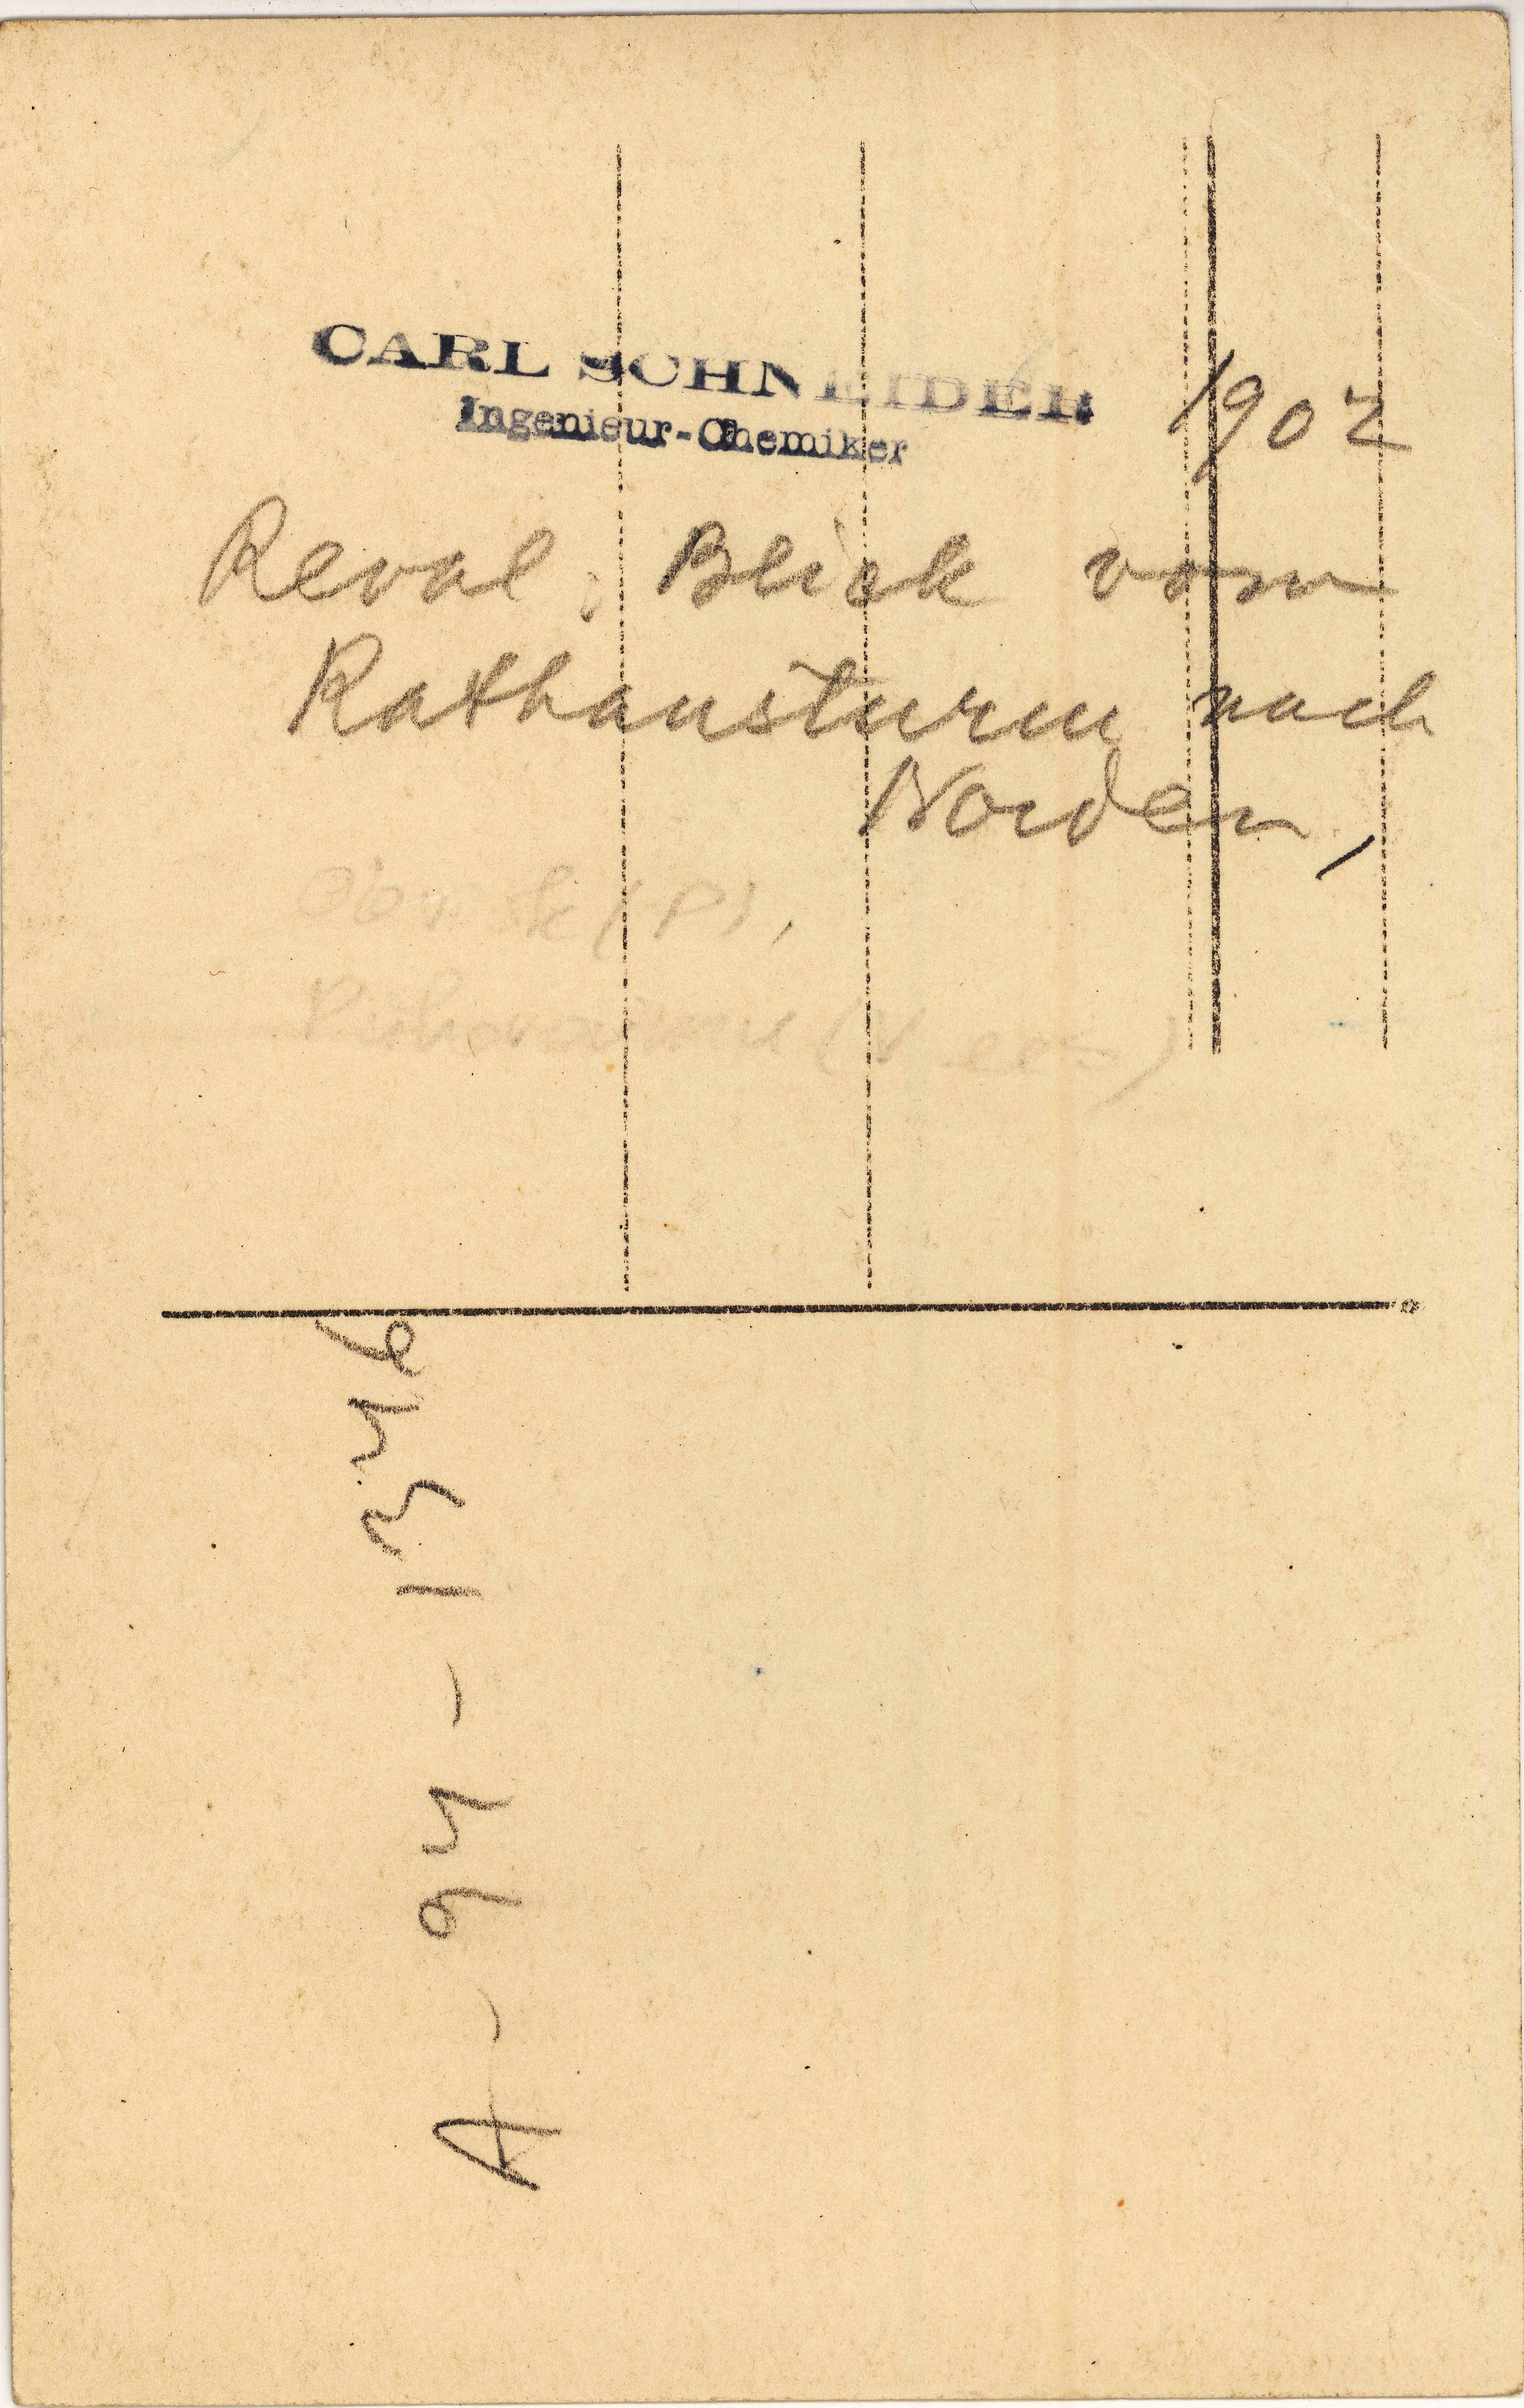 CARL SCHNEIDER
Ingenieur-Chemiker
1902
Reval, Blick vom
Rathausturm nach
Norden,
A-94-1346